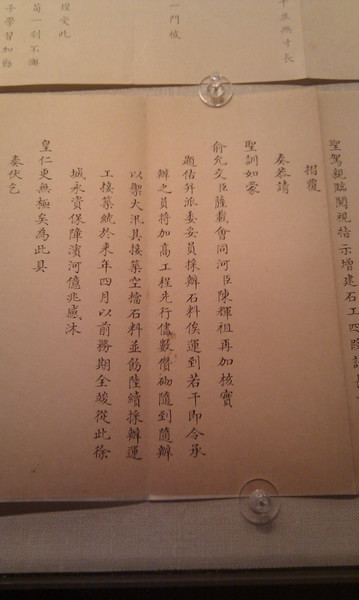 無寸長
一門被
受此
苟一刻不
子學習和
聖駕親臨閱視指示增建石工四段
摺覆
奏恭請
聖訓如蒙
俞允交臣薩載會同河臣陳輝祖再加核實
題估外派委妥員採辦石料俟運到若干即令承
辦之員將加高工程先行儘數儧砌隨到隨辦
以禦大汛其接築空檔石料並飭陸續採辦運
工接築統於來年四月以前務期全竣從此徐
城永資保障濱河億兆感沐
皇仁更無極矣為此具
奏伏乞